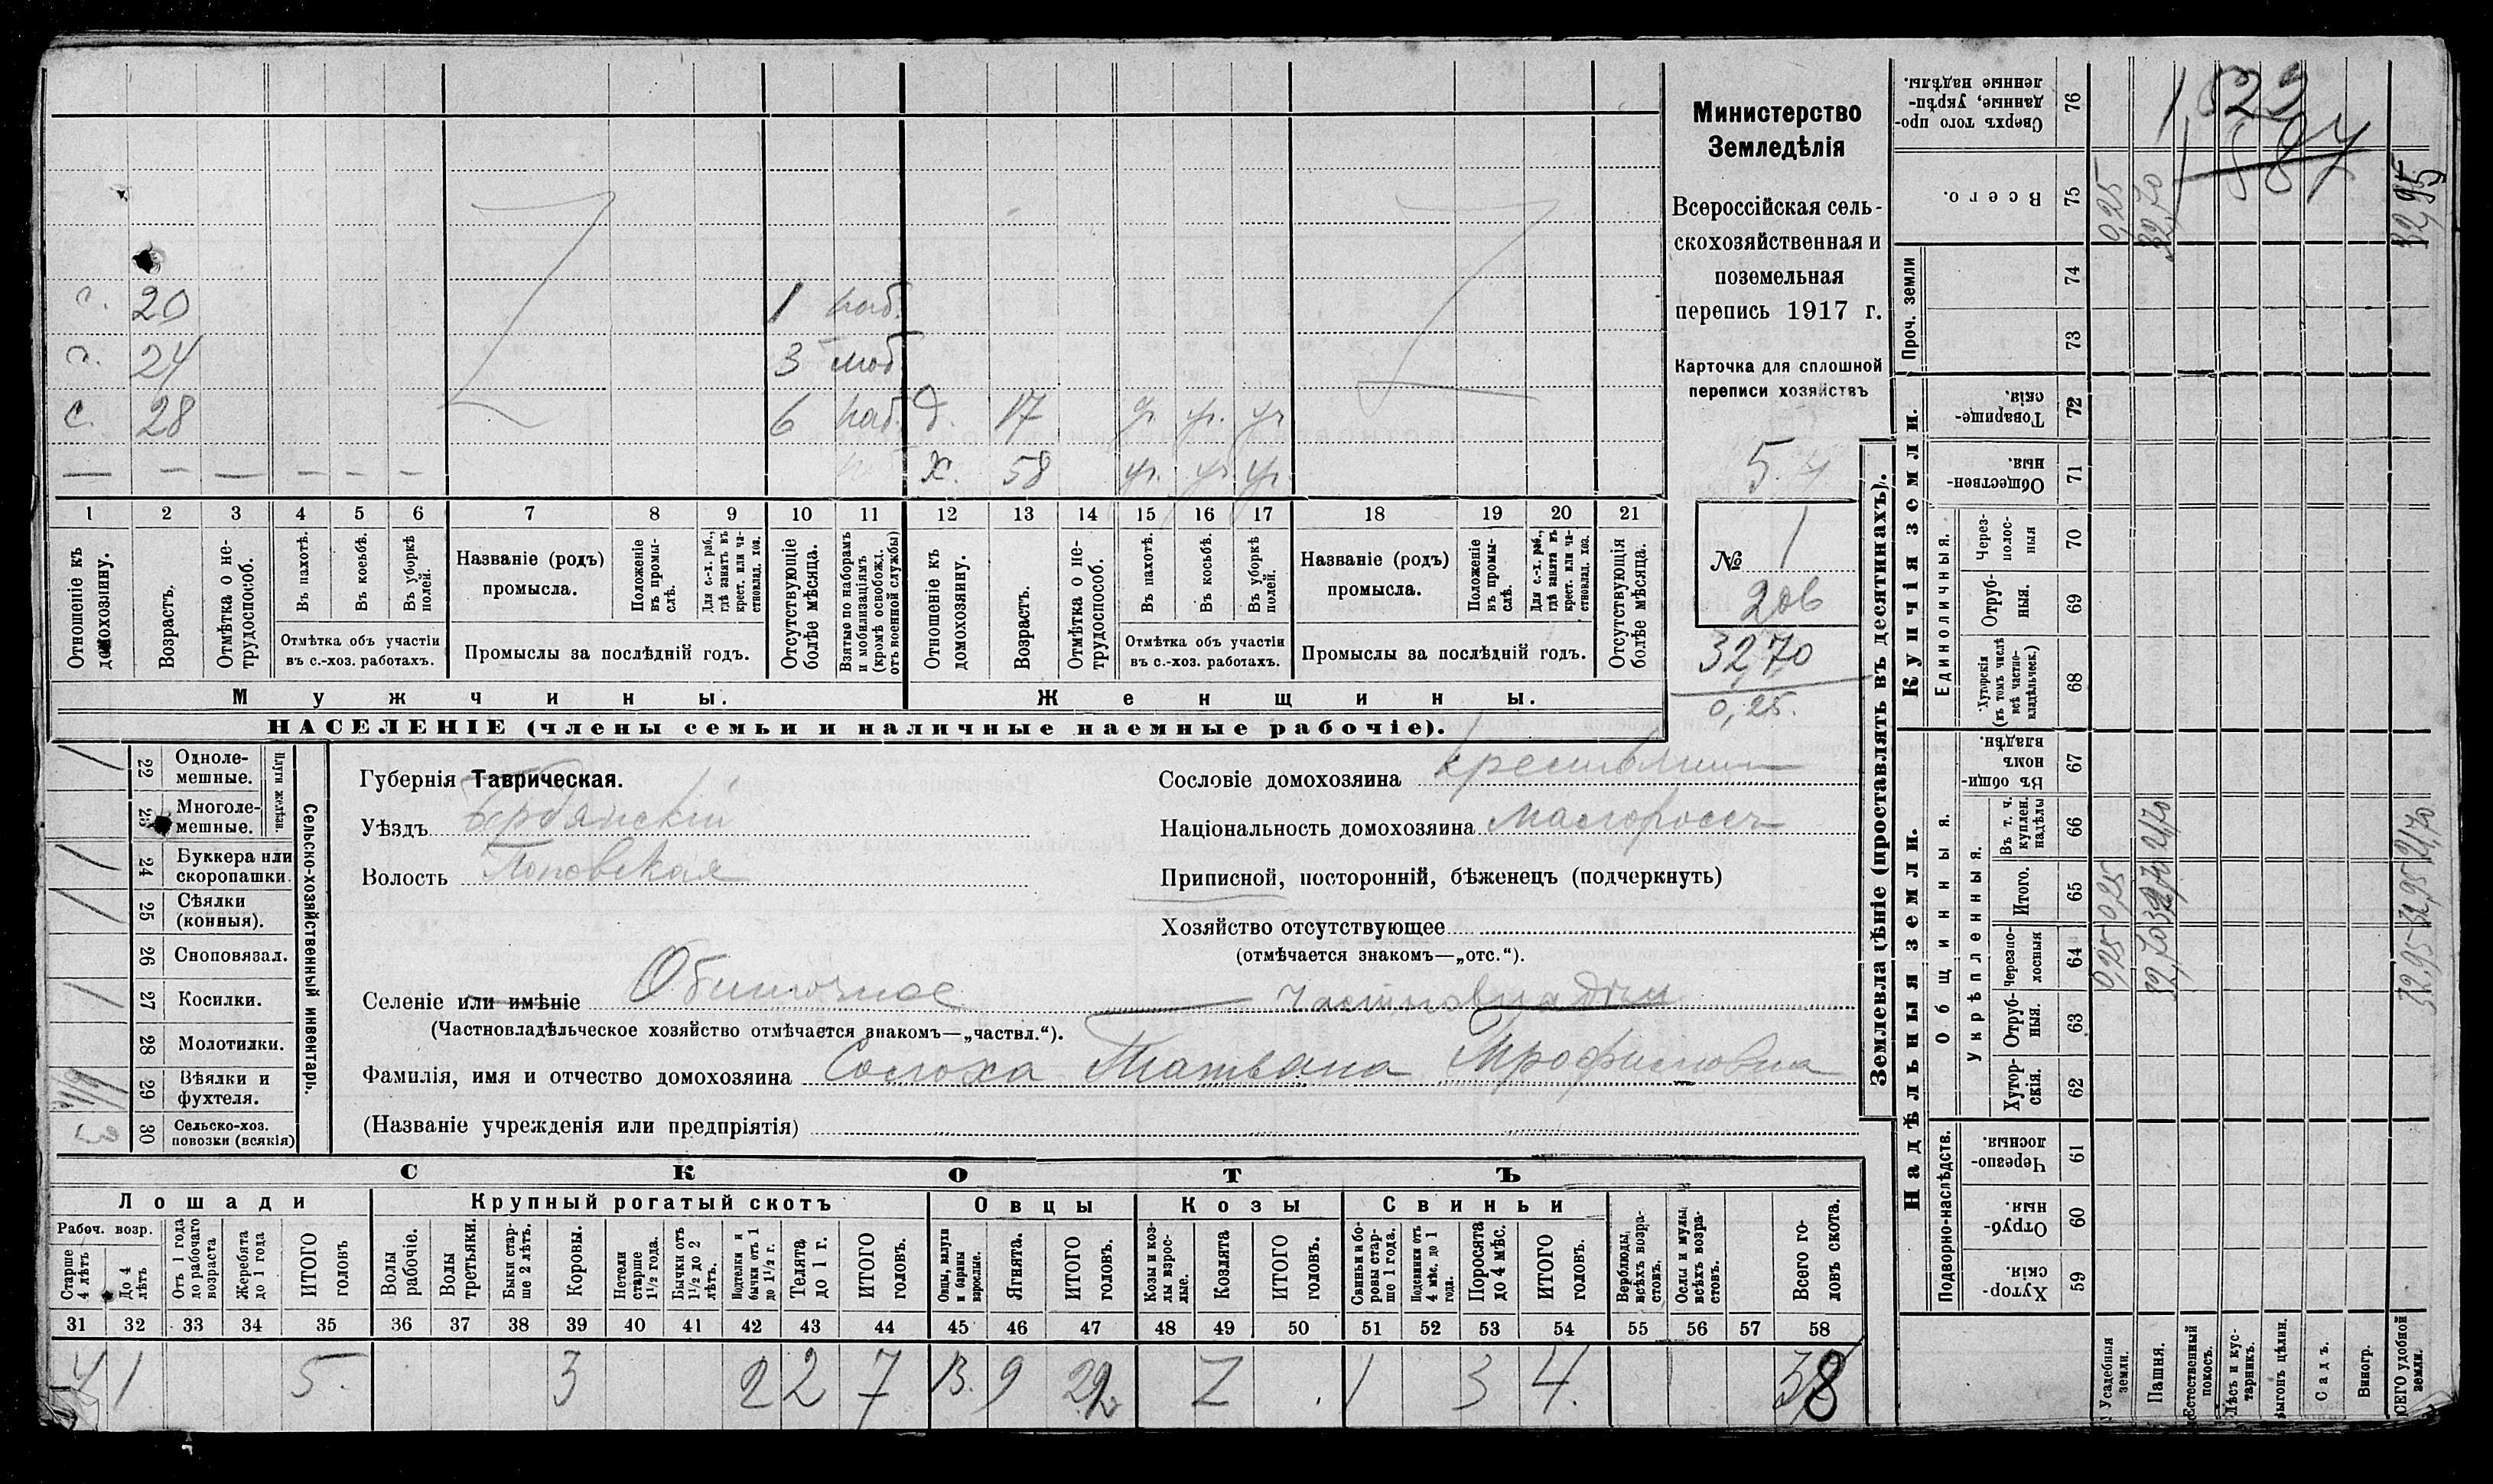 с. 20 1 наб.
с. 24 3 моб.
с. 28 6 наб. д. 17 уч. уч. уч.
— — — — — — х. 58 уч. уч. уч.
1 2 3 4 5 6 7 8 9 10 11 12 13 14 15 16 17 18 19 20 21
Отношеніе къ домохозяину.
Возрастъ.
Отмѣтка о не-трудоспособ.
Въ пахотѣ.
Въ косьбѣ.
Въ уборкѣ полей.
Отмѣтка объ участіи въ с.-хоз. работахъ.
Названіе (родъ) промысла.
Положеніе въ промы-слѣ.
Для с.-х. раб., гдѣ занятъ въ крест. или ча-стновлад. хоз.
Промыслы за послѣдній годъ.
Отсутствующіе болѣе мѣсяца.
Взятые по наборамъ и мобилизаціямъ (кромѣ освобожд. отъ военной службы)
Отношеніе къ домохозяину.
Возрастъ.
Отмѣтка о не-трудоспособ.
Въ пахотѣ.
Въ косьбѣ.
Въ уборкѣ полей.
Отмѣтка объ участіи въ с.-хоз. работахъ.
Названіе (родъ) промысла.
Положеніе въ промы-слѣ.
Для с.-х. раб., гдѣ занята въ крест. или ча-стновлад. хоз.
Промыслы за послѣдній годъ.
Отсутствующія болѣе мѣсяца.
Мужчины. Женщины.
НАСЕЛЕНІЕ (члены семьи и наличные наемные рабочіе).
Министерство
Земледѣлія
Всероссійская сель-
скохозяйственная и
поземельная
перепись 1917 г.
Карточка для сплошной
переписи хозяйствъ
№ 1
32,70
0,25.
22 Одноле-мешные.
23 Многоле-мешные.
Плуги желѣзн.
24 Буккера или скоропашки.
25 Сѣялки (конныя).
26 Сноповязал.
27 Косилки.
28 Молотилки.
29 Вѣялки и фухтеля.
30 Сельско-хоз. повозки (всякія)
Сельско-хозяйственный инвентарь.
Губернія Таврическая.
Уѣздъ Бердянскій
Волость Поповская
Сословіе домохозяина крестьянин
Національность домохозяина малороссъ
Приписной, посторонній, бѣженецъ (подчеркнуть)
Хозяйство отсутствующее
(отмѣчается знакомъ—„отс.“).
Селеніе или имѣніе Обиточное
(Частновладѣльческое хозяйство отмѣчается знакомъ—„частвл.“).
Фамилія, имя и отчество домохозяина Солоха Татьяна Трофимовна
(Названіе учрежденія или предпріятія)
СКОТЪ
Лошади Крупный рогатый скотъ Овцы Козы Свиньи
Рабоч. возр.
Старше 4 лѣтъ
До 4 лѣтъ
Отъ 1 года до рабочаго возраста
Жеребята до 1 года
ИТОГО головъ
Волы рабочіе.
Волы третьяки.
Быки стар-ше 2 лѣтъ.
Коровы.
Нетели старше 1½ года.
Бычки отъ 1½ до 2 лѣтъ.
Подтелки и бычки отъ 1 до 1½ г.
Телята до 1 г.
ИТОГО головъ.
Овцы, валухи и бараны взрослые.
Ягнята.
ИТОГО головъ.
Козы и коз-лы взрос-лые.
Козлята
ИТОГО головъ.
Свиньи и бо-ровы стар-ше 1 года.
Подсвинки отъ 4 мѣс. до 1 года.
Поросята до 4 мѣс.
ИТОГО головъ.
Верблюды, всѣхъ возра-стовъ.
Ослы и мулы, всѣхъ возра-стовъ.
Всего го-ловъ скота.
31 32 33 34 35 36 37 38 39 40 41 42 43 44 45 46 47 48 49 50 51 52 53 54 55 56 57 58
4 1 5. 3 2 2 7 13. 9 22 1 3 4. 38
Землевладѣніе (проставлять въ десятинахъ).
Купчія земли.
Надѣльныя земли.
Проч. земли
Единоличныя.
Общинныя.
Укрѣпленныя.
Подворно-наслѣдств.
Сверхъ того про-данные, укрѣп-ленные надѣлы. 76
Всего. 75
74
73
Товарище-скія. 72
Обществен-ныя. 71
Через-полос-ныя 70
Отруб-ныя. 69
Хуторскія (въ томъ числѣ всѣ частно-владѣльческ.) 68
Въ общи-номъ владѣн. 67
Въ т. ч. куплен. надѣлы 66
Итого. 65
Черезпо-лосныя 64
Отруб-ныя. 63
Хутор-скія. 62
Черезпо-лосныя. 61
Отруб-ныя. 60
Хутор-скія. 59
Усадебныя земли. 0,25 0,25 0,25
Пашня. 32,70 32,70 21,70 32,70
Естественный покосъ.
Лѣсъ и кус-тарникъ.
Выгонъ цѣлин.
Садъ.
Виногр.
ВСЕГО удобной земли. 32,95 32,95 21,70 32,95